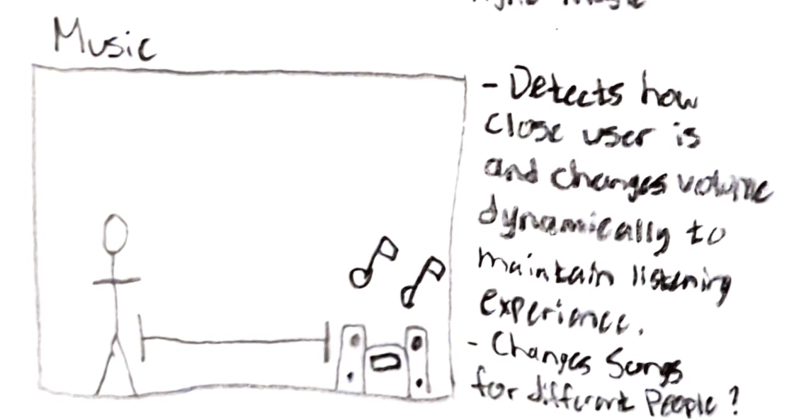 Music
- Detects how
close user is
and changes volume
dynamically to
maintain listening
experience.
- Changes Songs
for different People?